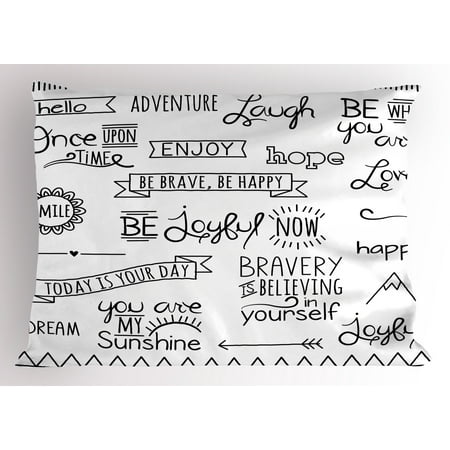 hello
ADVENTURE
Laugh
BE WH
you are
Once UPON
TIME
ENJOY
hope
BE BRAVE, BE HAPPY
Love
MILE
BE Joyful NOW
happ
TODAY IS YOUR DAY
BRAVERY
IS BELIEVING
in
yourself
DREAM
you are
MY
Sunshine
Joyfu